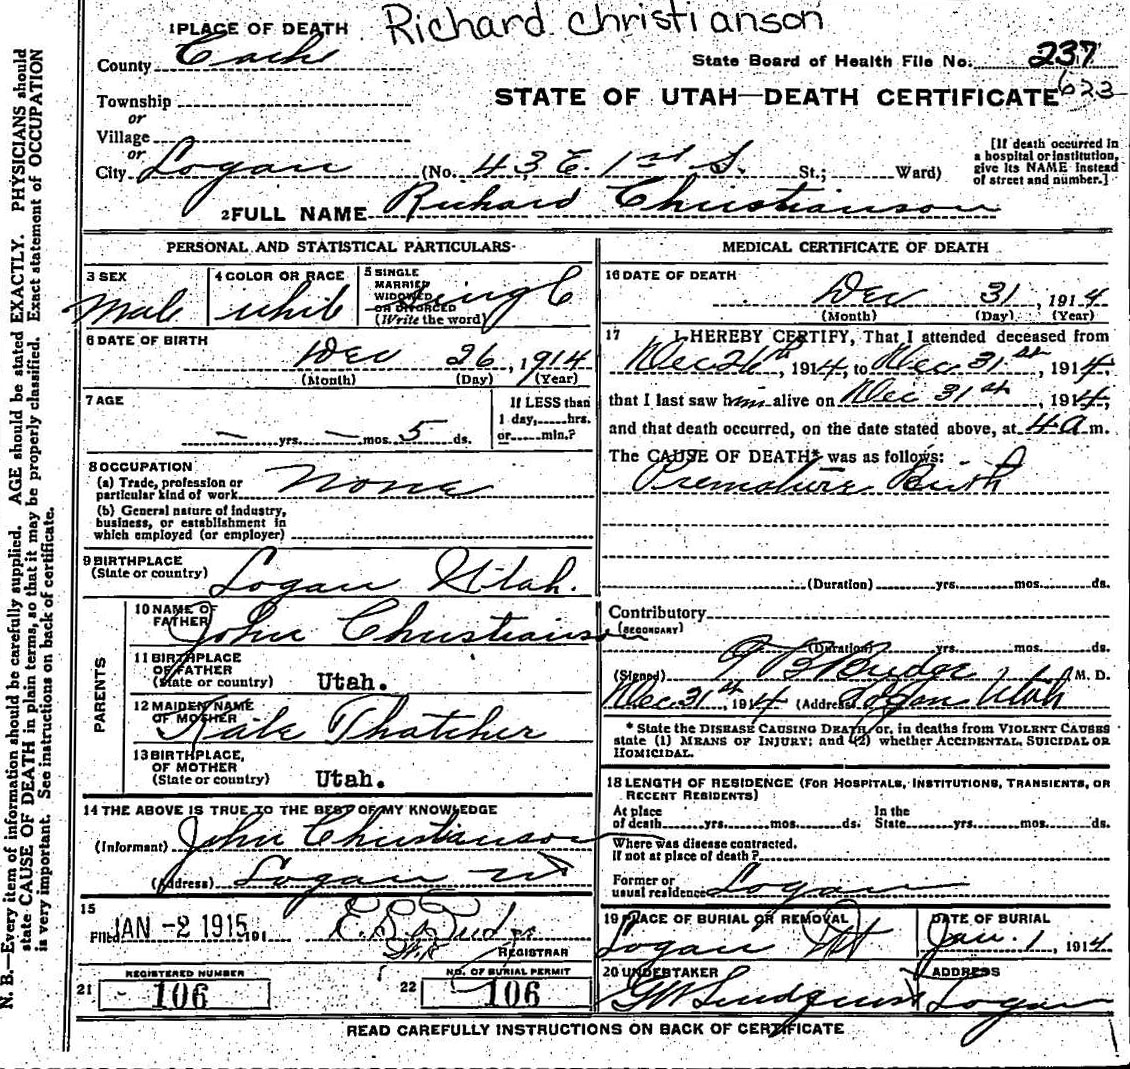 Richard Christianson
1 PLACE OF DEATH
County Cache
State Board of Health File No. 237
623
Township
or
Village
or
STATE OF UTAH—DEATH CERTIFICATE
City Logan (No. 43 E. 1st S. St.; Ward)
[If death occurred in a hospital or institution, give its NAME instead of street and number.]
2 FULL NAME Richard Christianson
PERSONAL AND STATISTICAL PARTICULARS
3 SEX
Male
4 COLOR OR RACE
white
5 SINGLE
MARRIED
WIDOWED
OR DIVORCED
(Write the word)
Single
6 DATE OF BIRTH
Dec 26, 1914
(Month) (Day) (Year)
7 AGE
— yrs. — mos. 5 ds.
If LESS than
1 day,......hrs.
or......min.?
8 OCCUPATION
(a) Trade, profession or
particular kind of work
None
(b) General nature of industry,
business, or establishment in
which employed (or employer)
9 BIRTHPLACE
(State or country)
Logan Utah.
PARENTS
10 NAME OF
FATHER
John Christianson
11 BIRTHPLACE
OF FATHER
(State or country)
Utah.
12 MAIDEN NAME
OF MOTHER
Kate Thatcher
13 BIRTHPLACE,
OF MOTHER
(State or country)
Utah.
14 THE ABOVE IS TRUE TO THE BEST OF MY KNOWLEDGE
(Informant) John Christianson
(Address) Logan
15
Filed JAN -2 1915, 191
REGISTRAR
REGISTERED NUMBER
21 106
NO. OF BURIAL PERMIT
22 106
MEDICAL CERTIFICATE OF DEATH
16 DATE OF DEATH
Dec 31, 1914
(Month) (Day) (Year)
17 I HEREBY CERTIFY, That I attended deceased from
Dec 26th, 1914, to Dec 31st, 1914
that I last saw him alive on Dec 31st, 1914,
and that death occurred, on the date stated above, at 4 a m.
The CAUSE OF DEATH* was as follows:
Premature Birth
(Duration) yrs. mos. ds.
Contributory
(SECONDARY)
(Duration) yrs. mos. ds.
(Signed) M. D.
Dec 31st, 1914 (Address) Utah
* State the DISEASE CAUSING DEATH, or, in deaths from VIOLENT CAUSES
state (1) MEANS OF INJURY; and (2) whether ACCIDENTAL, SUICIDAL OR
HOMICIDAL.
18 LENGTH OF RESIDENCE (FOR HOSPITALS, INSTITUTIONS, TRANSIENTS, OR
RECENT RESIDENTS)
At place In the
of death yrs. mos. ds. State yrs. mos. ds.
Where was disease contracted.
If not at place of death?
Former or
usual residence Logan
19 PLACE OF BURIAL OR REMOVAL
Logan
DATE OF BURIAL
Jan. 1, 1914
20 UNDERTAKER
ADDRESS
Logan
READ CAREFULLY INSTRUCTIONS ON BACK OF CERTIFICATE
N. B.—Every item of information should be carefully supplied. AGE should be stated EXACTLY. PHYSICIANS should
state CAUSE OF DEATH in plain terms, so that it may be properly classified. Exact statement of OCCUPATION
is very important. See instructions on back of certificate.